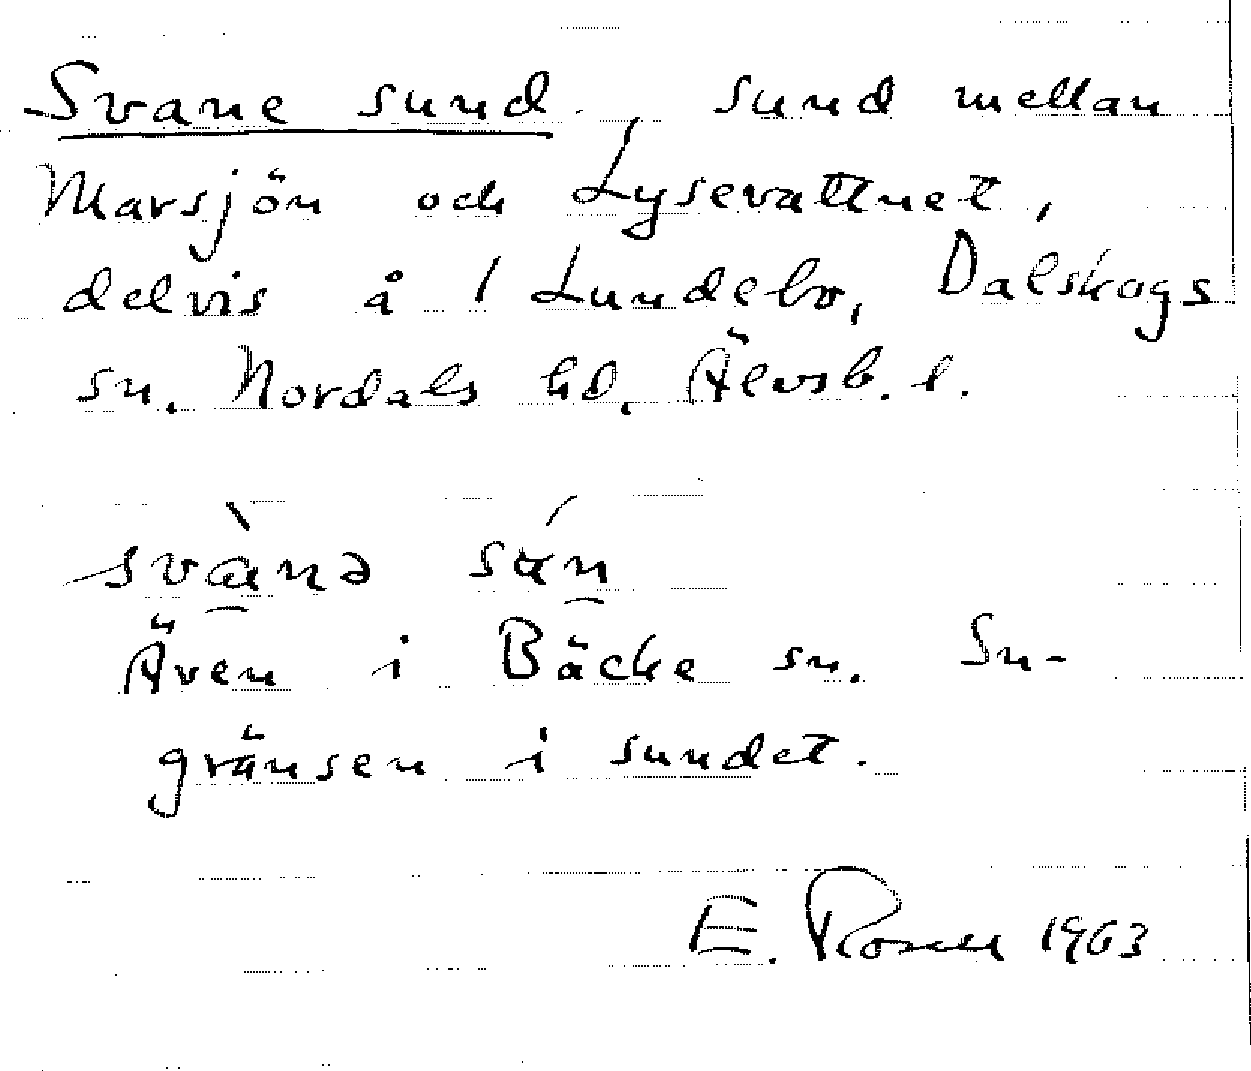 Svane sund. sund mellan
Marsjön och Lysevattnet,
delvis å 1 Lundebo, Dalskogs
sn. Nordals hd. Älvsb. l.
Även i Bäcke sn. Sn-
gränsen i sundet.
E. Rosell 1963